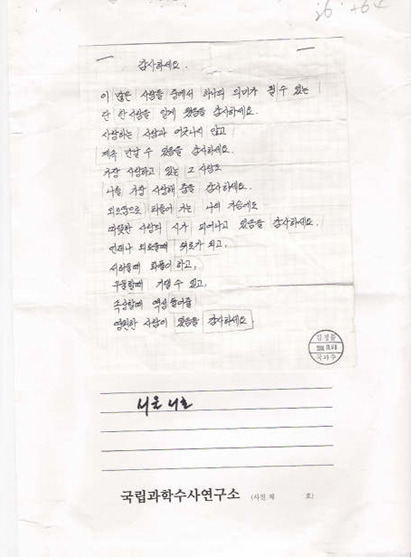 감사하세요.
이 많은 사람들 중에서 하나의 의미가 될 수 있는
단 한사람을 알게 됐음을 감사하세요.
사랑하는 사람과 어긋나지 않고
계속 만날 수 있음을 감사하세요.
가장 사랑하고 있는 그 사람도
나를 가장 사랑해 줌을 감사하세요.
외로움으로 파들어 가는 나의 가슴에도
따뜻한 사랑의 시가 피어나고 있음을 감사하세요.
언제나 외로울때 위로가 되고,
서러울때 화풀이 하고,
우울할때 기댈 수 있고,
속상할때 역성 들어줄
영원한 사람이 있음을 감사하세요.
감정물
국과수
국립과학수사연구소 (사진 제 호)